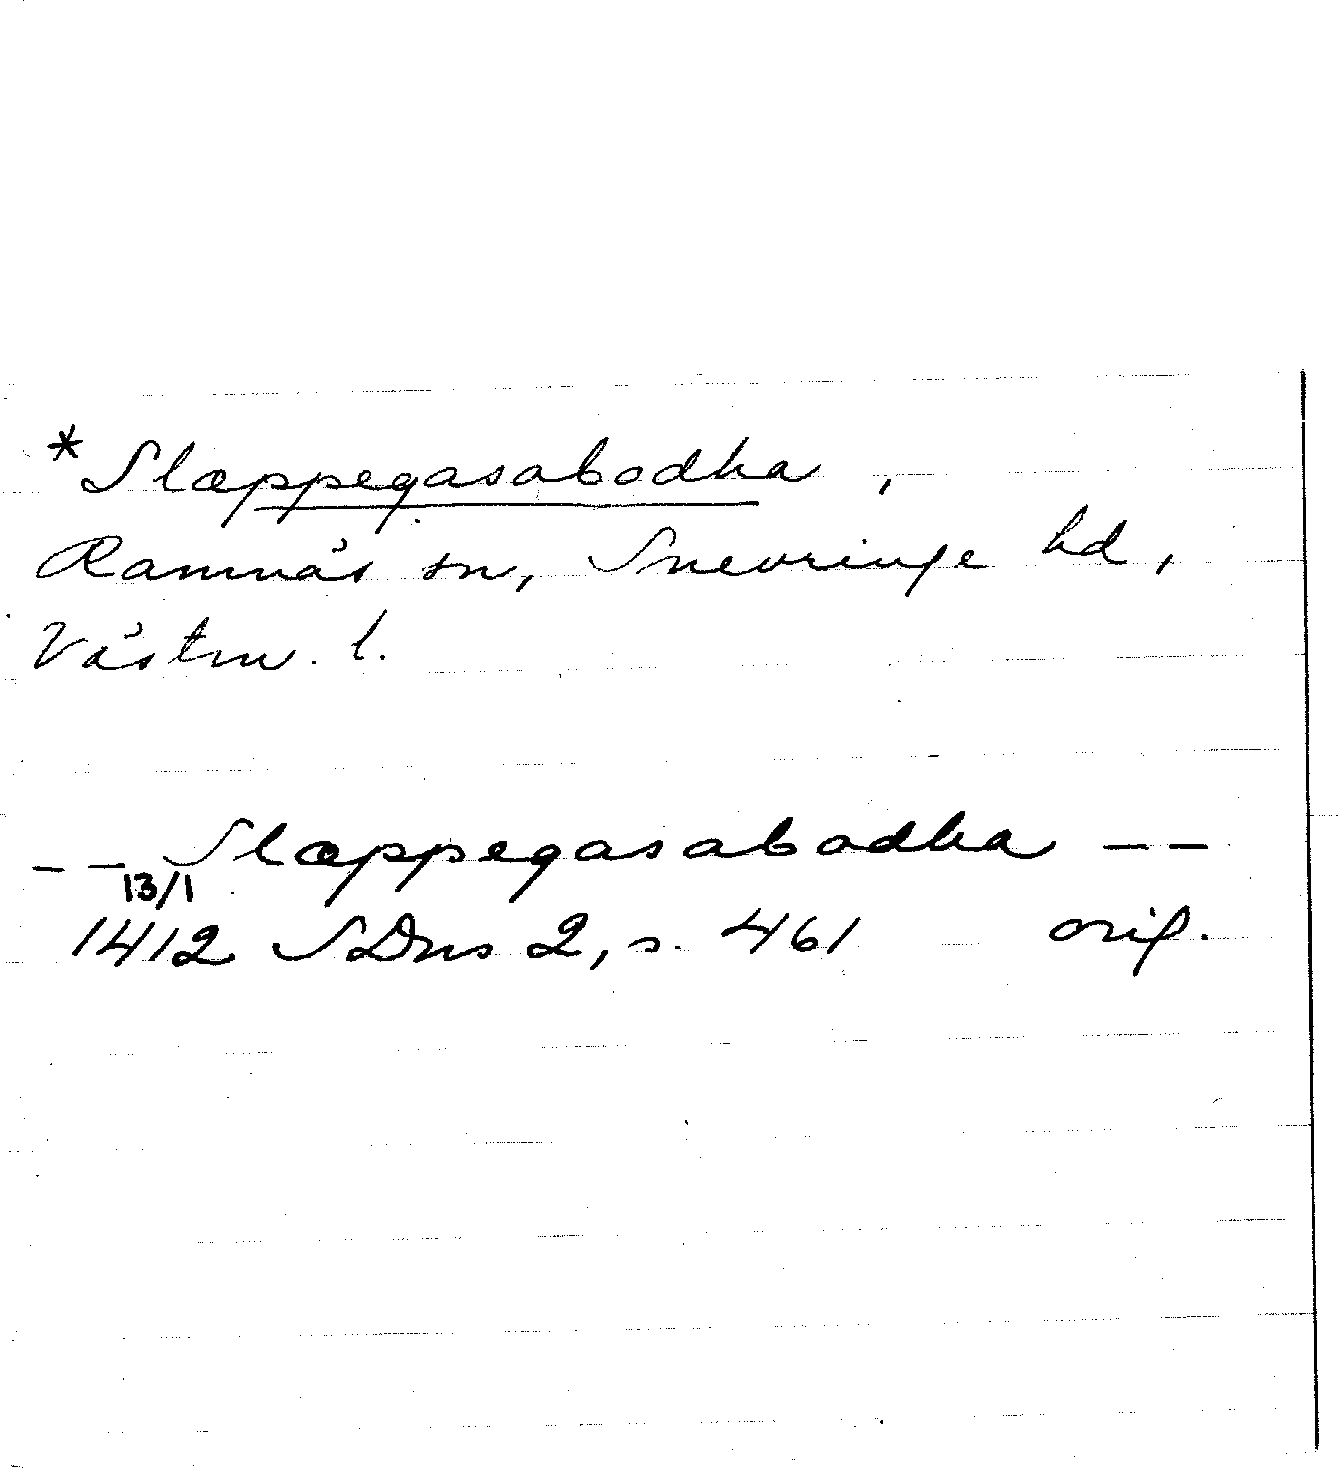 *Slæppegasabodha,
Ramnäs sn, Snevringe hd,
Västm. l.
-- Slæppegasabodha --
13/1
1412 SDns 2, s. 461 orig.